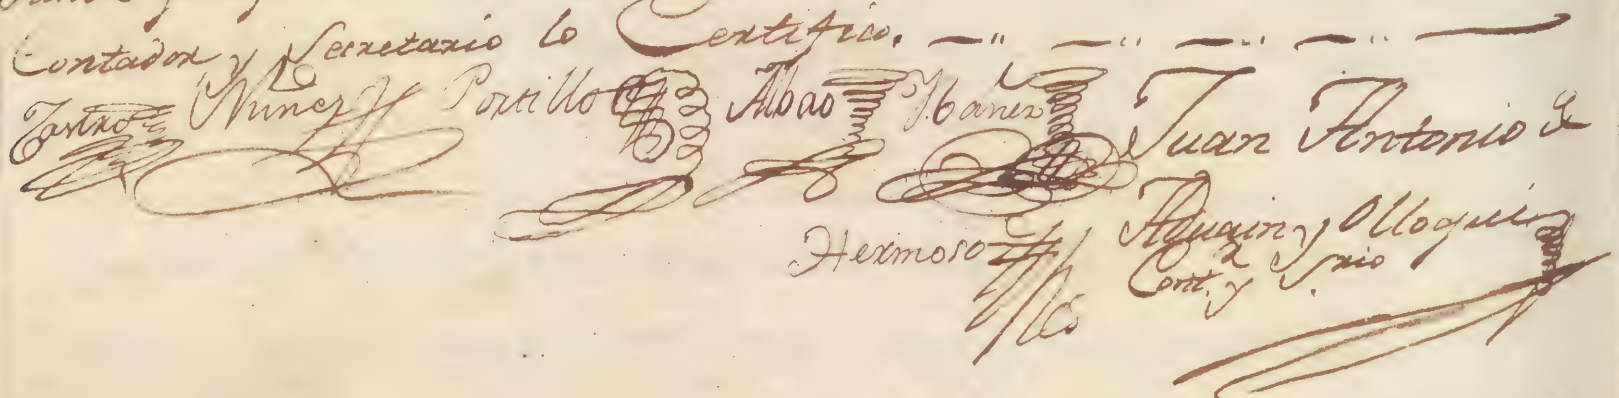 Contador y Secretario lo Certifico.
Castro Nuñez Portillo Albao Ibañez Juan Antonio de
Hermoso Aduain y Olloqui
Cont.r y Srio